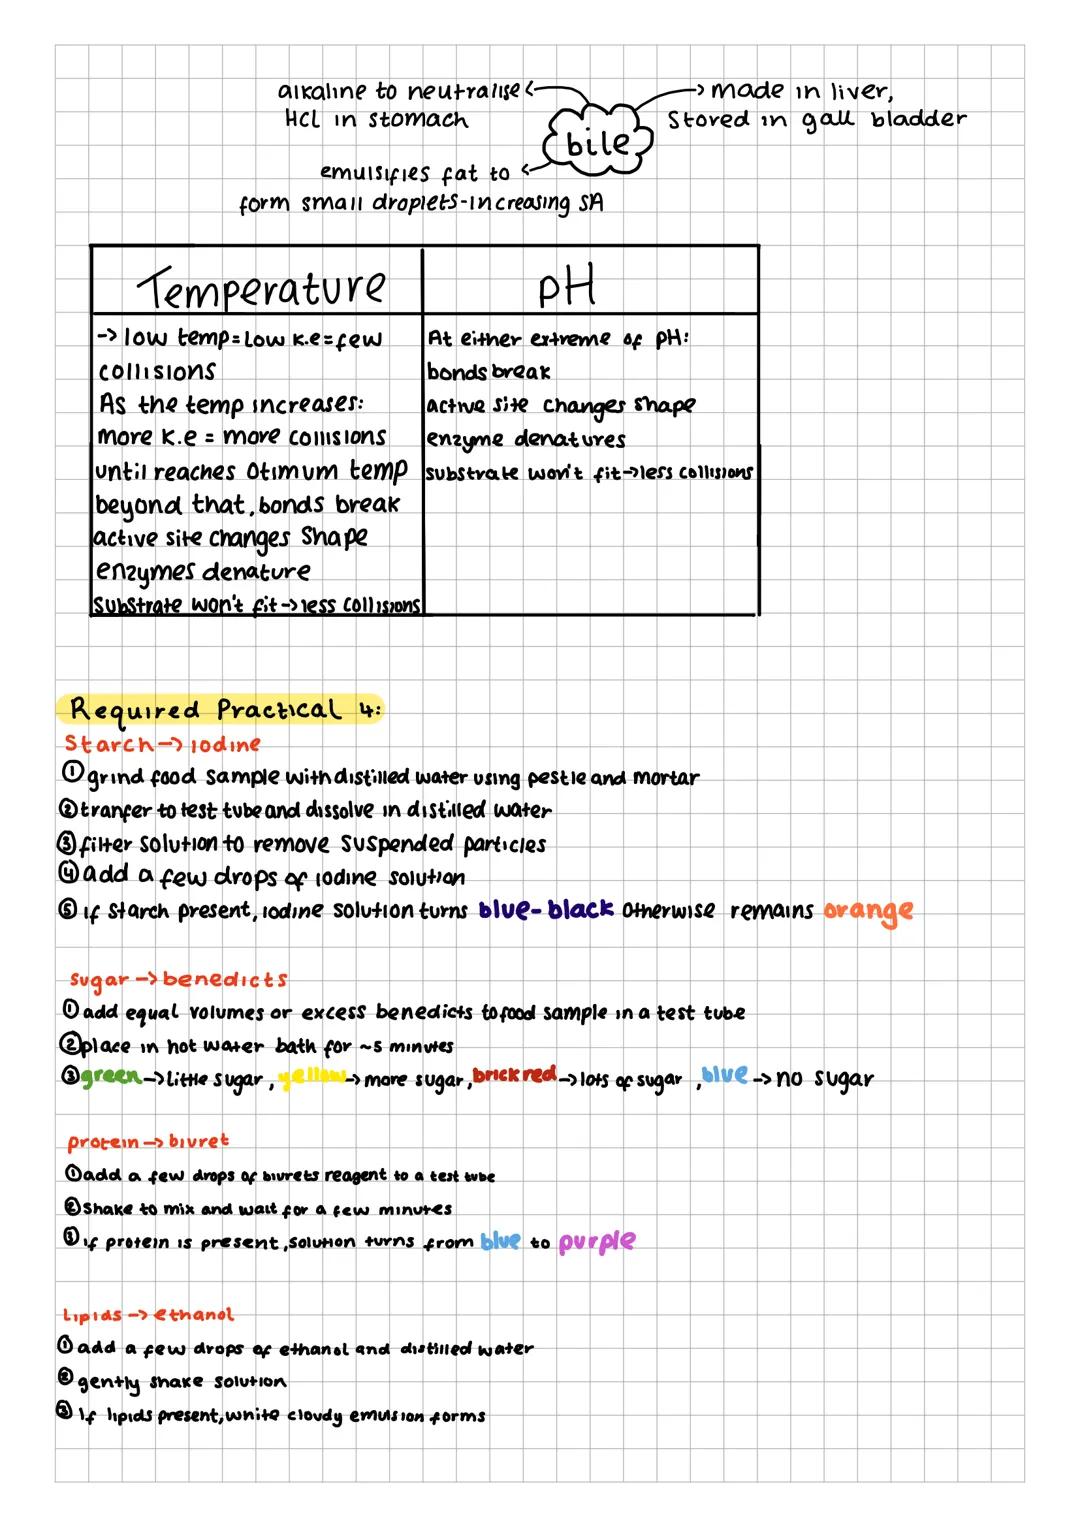 alkaline to neutralise
HCl in stomach
made in liver,
Stored in gall bladder
bile
emulsifies fat to
form small droplets-increasing SA
Temperature
-> low temp=Low k.e=few
collisions
As the temp increases:
more k.e = more collisions
until reaches Otimum temp
beyond that, bonds break
active site changes Shape
enzymes denature
Substrate won't fit->less collisions
pH
At either extreme of pH:
bonds break
active site changes shape
enzyme denatures
substrate won't fit->less collisions
Required Practical 4:
Starch-> iodine
① grind food sample with distilled water using pestle and mortar
② tranfer to test tube and dissolve in distilled water
③ filter solution to remove suspended particles
④ add a few drops of iodine solution
⑤ if starch present, iodine solution turns blue-black otherwise remains orange
sugar -> benedicts
① add equal volumes or excess benedicts to food sample in a test tube
② place in hot water bath for ~5 minutes
③ green->little sugar, yellow-> more sugar, brick red->lots of sugar, blue-> no sugar
protein -> biuret
① add a few drops of biurets reagent to a test tube
② Shake to mix and wait for a few minutes
③ if protein is present, solution turns from blue to purple
Lipids -> ethanol
① add a few drops of ethanol and distilled water
② gently shake solution
③ If lipids present, white cloudy emulsion forms